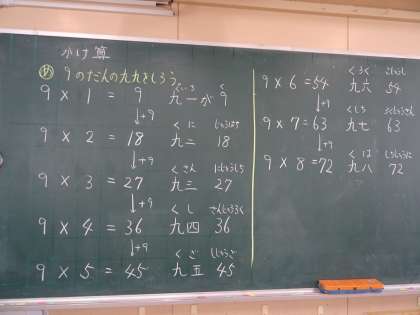 かけ算
め 9のだんの九九をしろう。
くいち く
9 × 1 = 9 九一が 9
↓+9
くに じゅうはち
9 × 2 = 18 九二 18
↓+9
くさん にじゅうしち
9 × 3 = 27 九三 27
↓+9
くし さんじゅうろく
9 × 4 = 36 九四 36
↓+9
くご しじゅうご
9 × 5 = 45 九五 45
くろく ごじゅうし
9 × 6 = 54 九六 54
↓+9
くしち ろくじゅうさん
9 × 7 = 63 九七 63
↓+9
くは しちじゅうに
9 × 8 = 72 九八 72